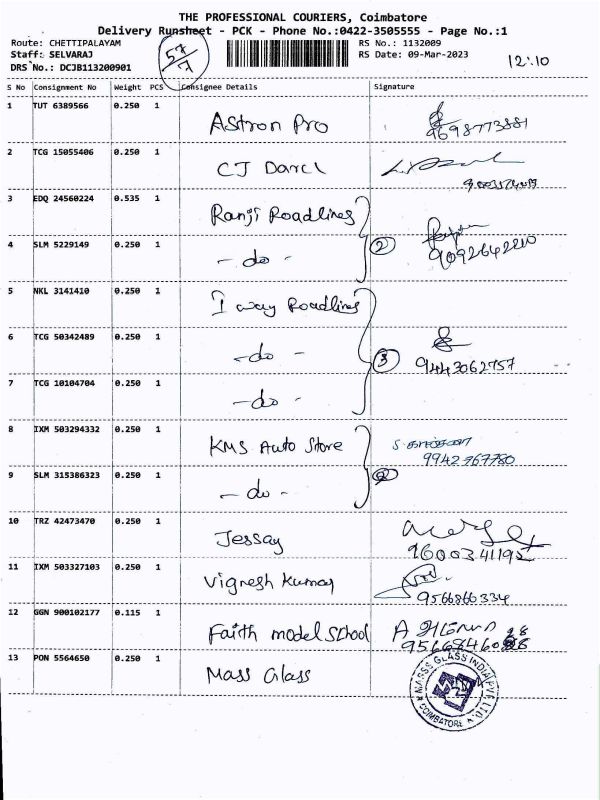 THE PROFESSIONAL COURIERS, Coimbatore
Delivery Runsheet - PCK - Phone No.:0422-3505555 - Page No.:1
Route: CHETTIPALAYAM RS No.: 1132009
Staff: SELVARAJ RS Date: 09-Mar-2023
DRS No.: DCJB113200901
57/7
12:10
S No Consignment No Weight PCS Consignee Details Signature
1 TUT 6389566 0.250 1 Astron Pro
9698773881
2 TCG 15055406 0.250 1 CJ Darcl
3 EDQ 24560224 0.535 1 Ranji Roadlines
4 SLM 5229149 0.250 1 - do - 2
9092642210
5 NKL 3141410 0.250 1 I way Roadlines
6 TCG 50342489 0.250 1 - do - 3
9443062757
7 TCG 10104704 0.250 1 - do -
8 IXM 503294332 0.250 1 KMS Auto Store
9942767780
9 SLM 315386323 0.250 1 - do - 2
10 TRZ 42473470 0.250 1 Jessay
9600341195
11 IXM 503327103 0.250 1 Vignesh Kumar
9566866334
12 GGN 900102177 0.115 1 Faith model School
13 PON 5564650 0.250 1 Mass Glass
MASSS GLASS INDIA PVT. LTD.
COIMBATORE